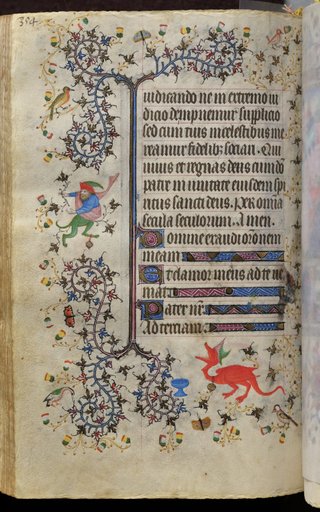 354
iudicando ne in extremo iu
dicio dempnemur supplicio
sed cum tuis in celestibus me
reamur fideliter sociari. Qui
viuis et regnas deus cum deo
patre in vnitate eiusdem spi
ritus sancti deus. Per omnia
secula seculorum. Amen.
Domine exaudi orõnem
meam
Et clamor meus ad te ue
niat
Pater nr̃
Ad terciam